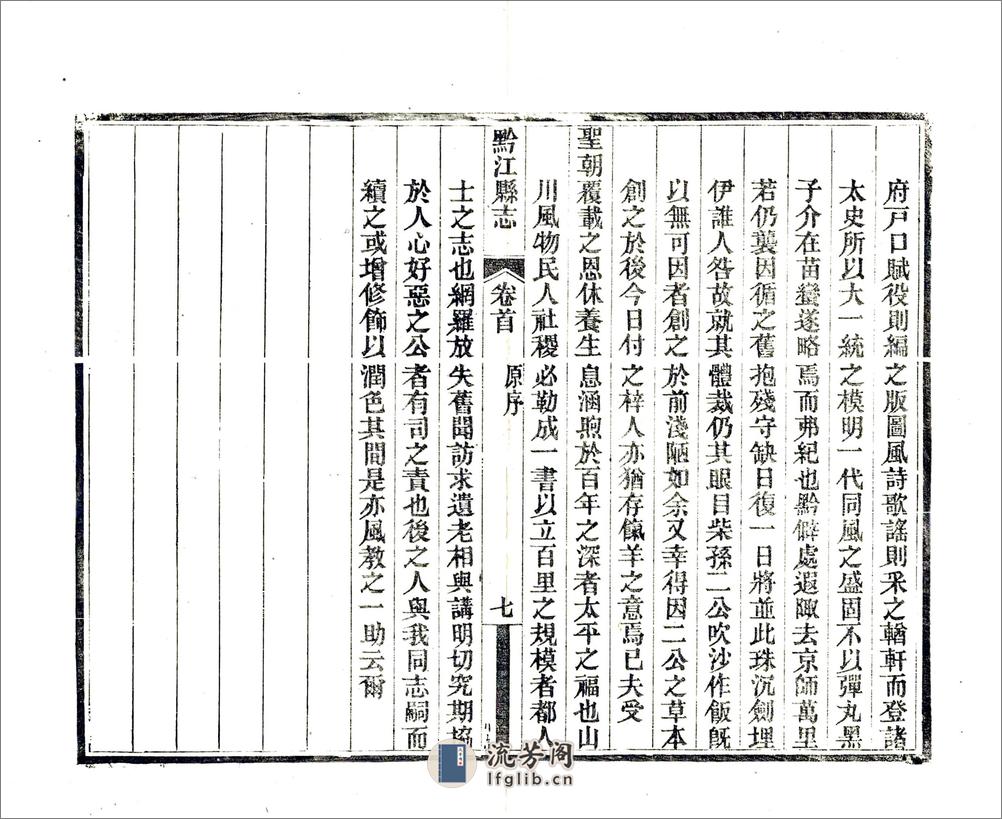 府戸口賦役則編之版圖風詩歌謠則采之輶軒而登諸
太史所以大一統之模明一代同風之盛固不以彈丸黑
子介在苗蠻遂略焉而弗紀也黔僻處遐陬去京師萬里
若仍襲因循之舊抱殘守缺日復一日將並此珠沉劍埋
伊誰人咎故就其體裁仍其眼目柴孫二公吹沙作飯旣
以無可因者創之於前淺陋如余又幸得因二公之草本
創之於後今日付之梓人亦猶存餼羊之意焉已夫受
聖朝覆載之恩休養生息涵煦於百年之深者太平之福也山
川風物民人社稷必勒成一書以立百里之規模者都人
黔江縣志 卷首 原序 七
士之志也網羅放失舊聞訪求遺老相與講明切究期協
於人心好惡之公者有司之責也後之人與我同志嗣而
續之或增修飾以潤色其間是亦風教之一助云爾
流芳阁
lfglib.cn